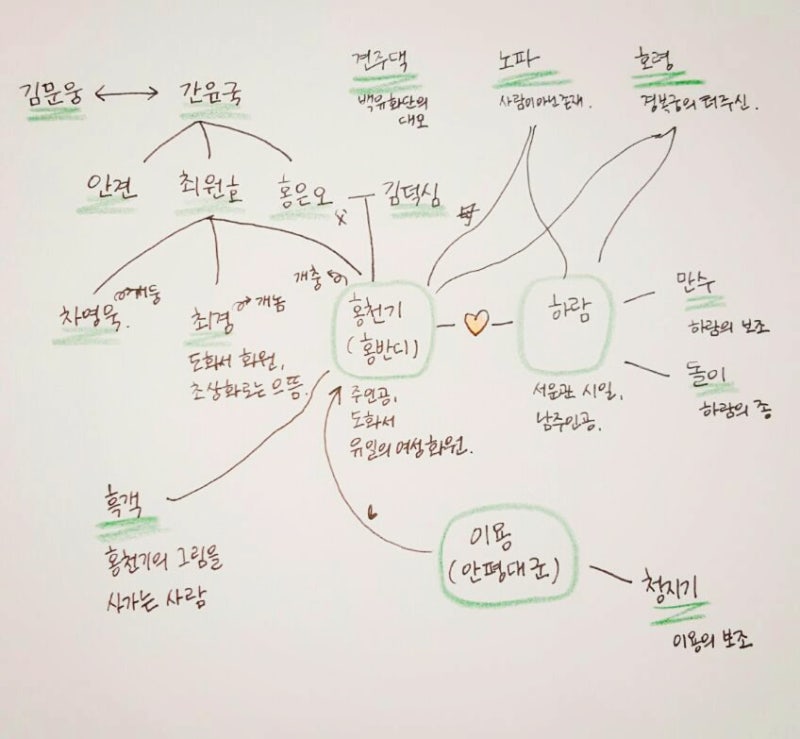 견주댁
백유화단의
대모
노파
사람이아닌존재.
호령
경복궁의 터주신.
김문웅
간윤국
안견
최원호
홍은오
김덕심
개충
차영욱.
개둥
최경
개놈
도화서 화원,
초상화로는 으뜸.
홍천기
(홍반디)
주인공,
도화서
유일의 여성화원.
하람
서운관 시일,
남주인공.
만수
하람의 보조
돌이
하람의 종
흑객
홍천기의 그림을
사가는 사람
이용
(안평대군)
청지기
이용의 보조